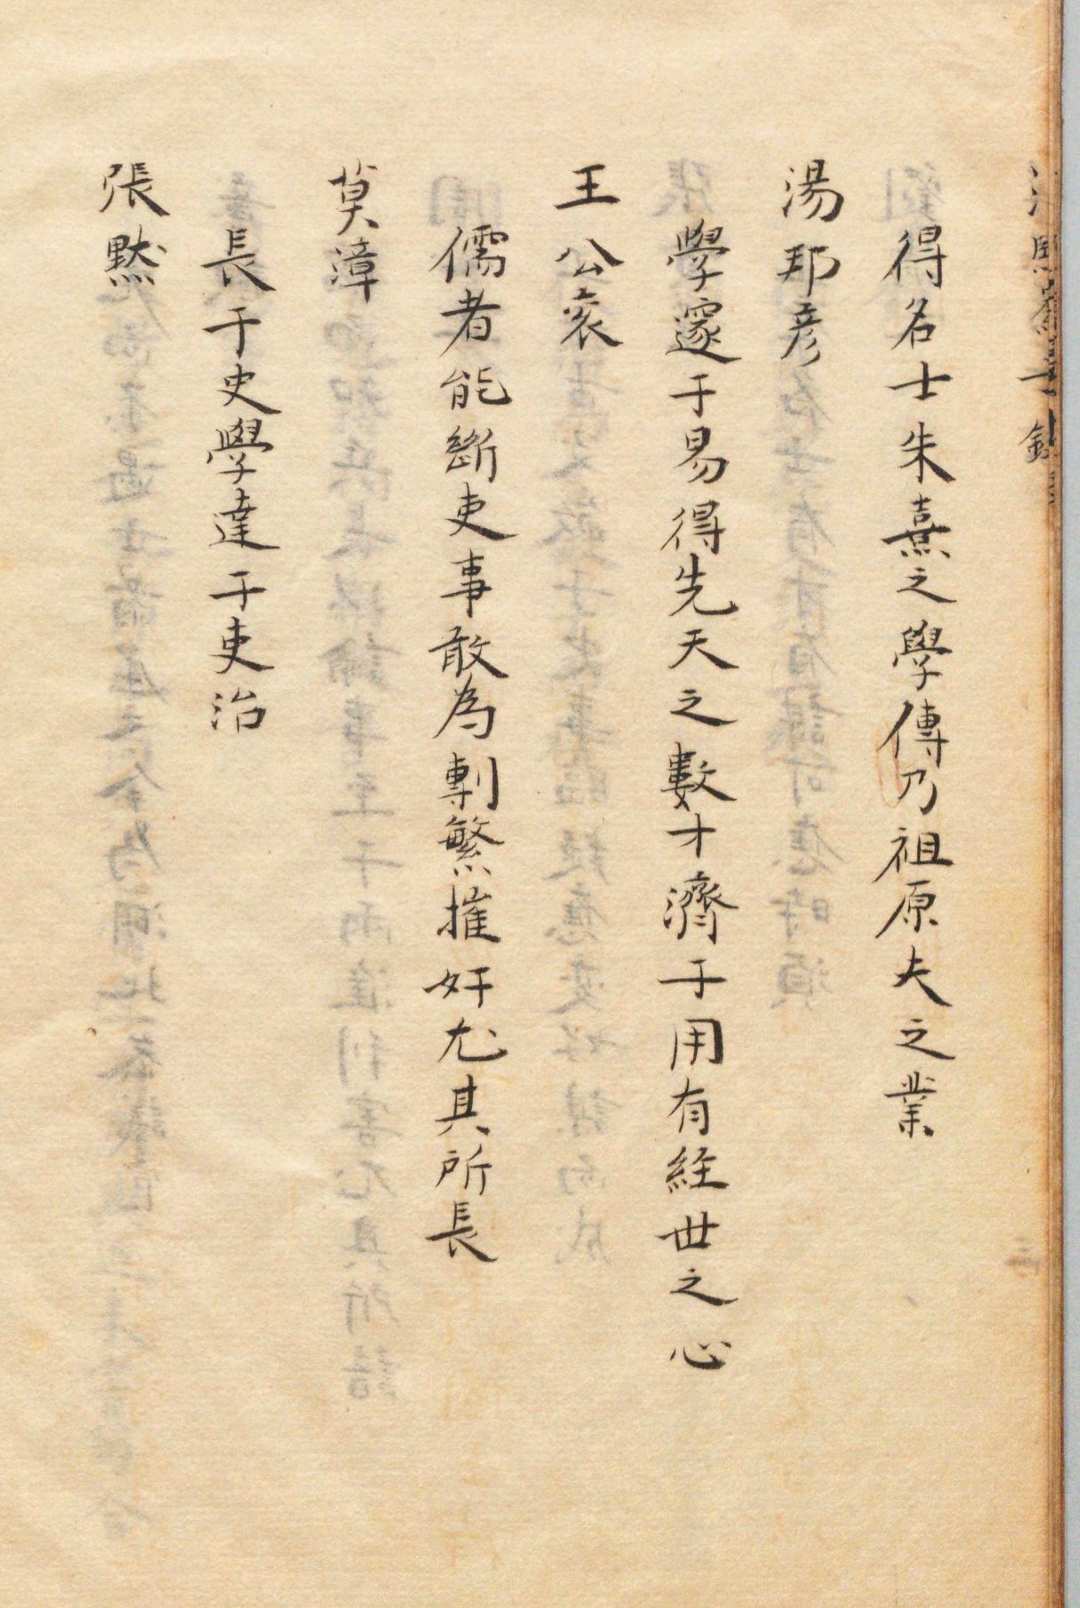 得名士朱熹之學傳乃祖原夫之業
湯邦彥
學邃于易得先天之數才濟于用有經世之心
王公袞
儒者能斷吏事敢為剸繁摧奸尤其所長
莫漳
長于史學達于吏治
張默